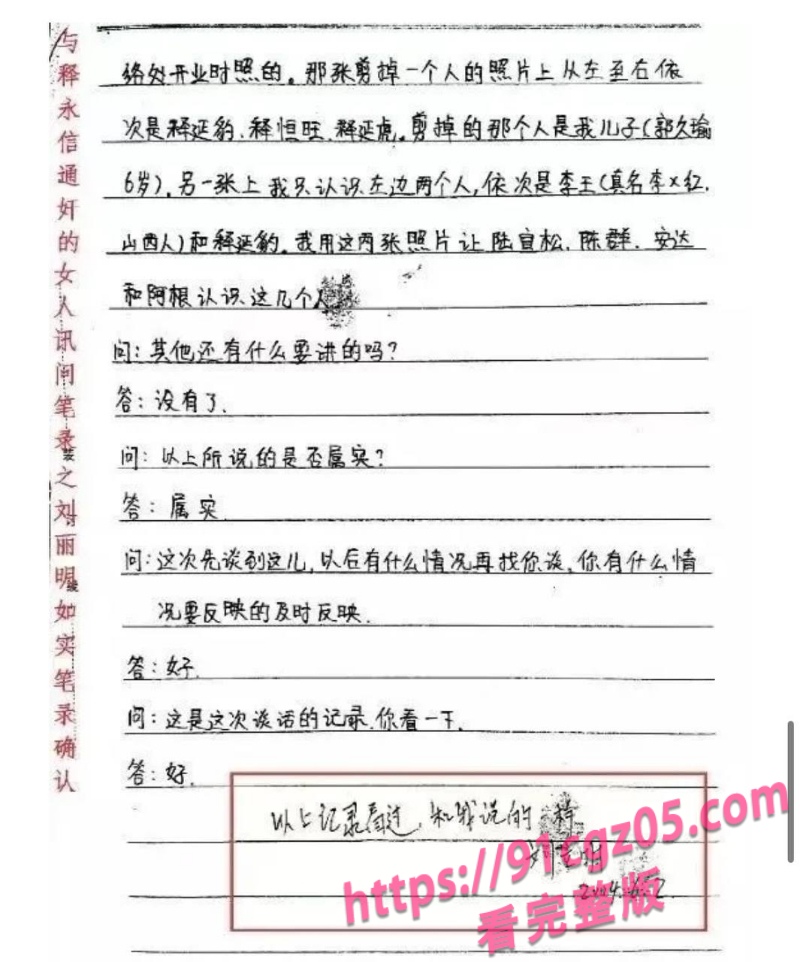 与释永信通奸的女人讯问笔录之刘丽明如实笔录确认
络处开业时照的。那张剪掉一个人的照片上从左至右依
次是释延豹、释恒旺、释延虎。剪掉的那个人是我儿子(郭久瑜
6岁)。另一张上我只认识左边两个人,依次是李王(真名李×红.
山西人)和释延豹。我用这两张照片让陆宜松、陈群、安达
和阿根认识这几个
问:其他还有什么要讲的吗?
答:没有了.
问:以上所说的是否属实?
答:属实.
问:这次先谈到这儿,以后有什么情况再找你谈,你有什么情
况要反映的及时反映.
答:好.
问:这是这次谈话的记录.你看一下.
答:好.
以上记录看过,和我说的 样
https://91cgz05.com
看完整版